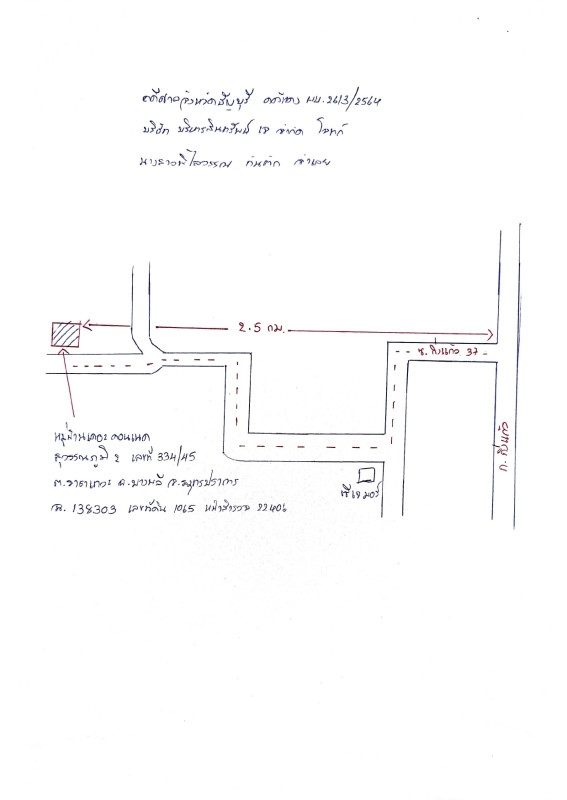 คดีศาลจังหวัดธัญบุรี คดีแดง ผบ.2613/2564
บริษัท บริหารสินทรัพย์ เจ จำกัด โจทก์
นางสาววิไลวรรณ จำเลย
2.5 กม.
ซ. กิ่งแก้ว 37
ถ. กิ่งแก้ว
หมู่บ้านเดอะคอนเนค
สุวรรณภูมิ 2 เลขที่ 334/45
ต.ราชาเทวะ อ.บางพลี จ.สมุทรปราการ
ฉ. 138303 เลขที่ดิน 1065 หน้าสำรวจ 22406